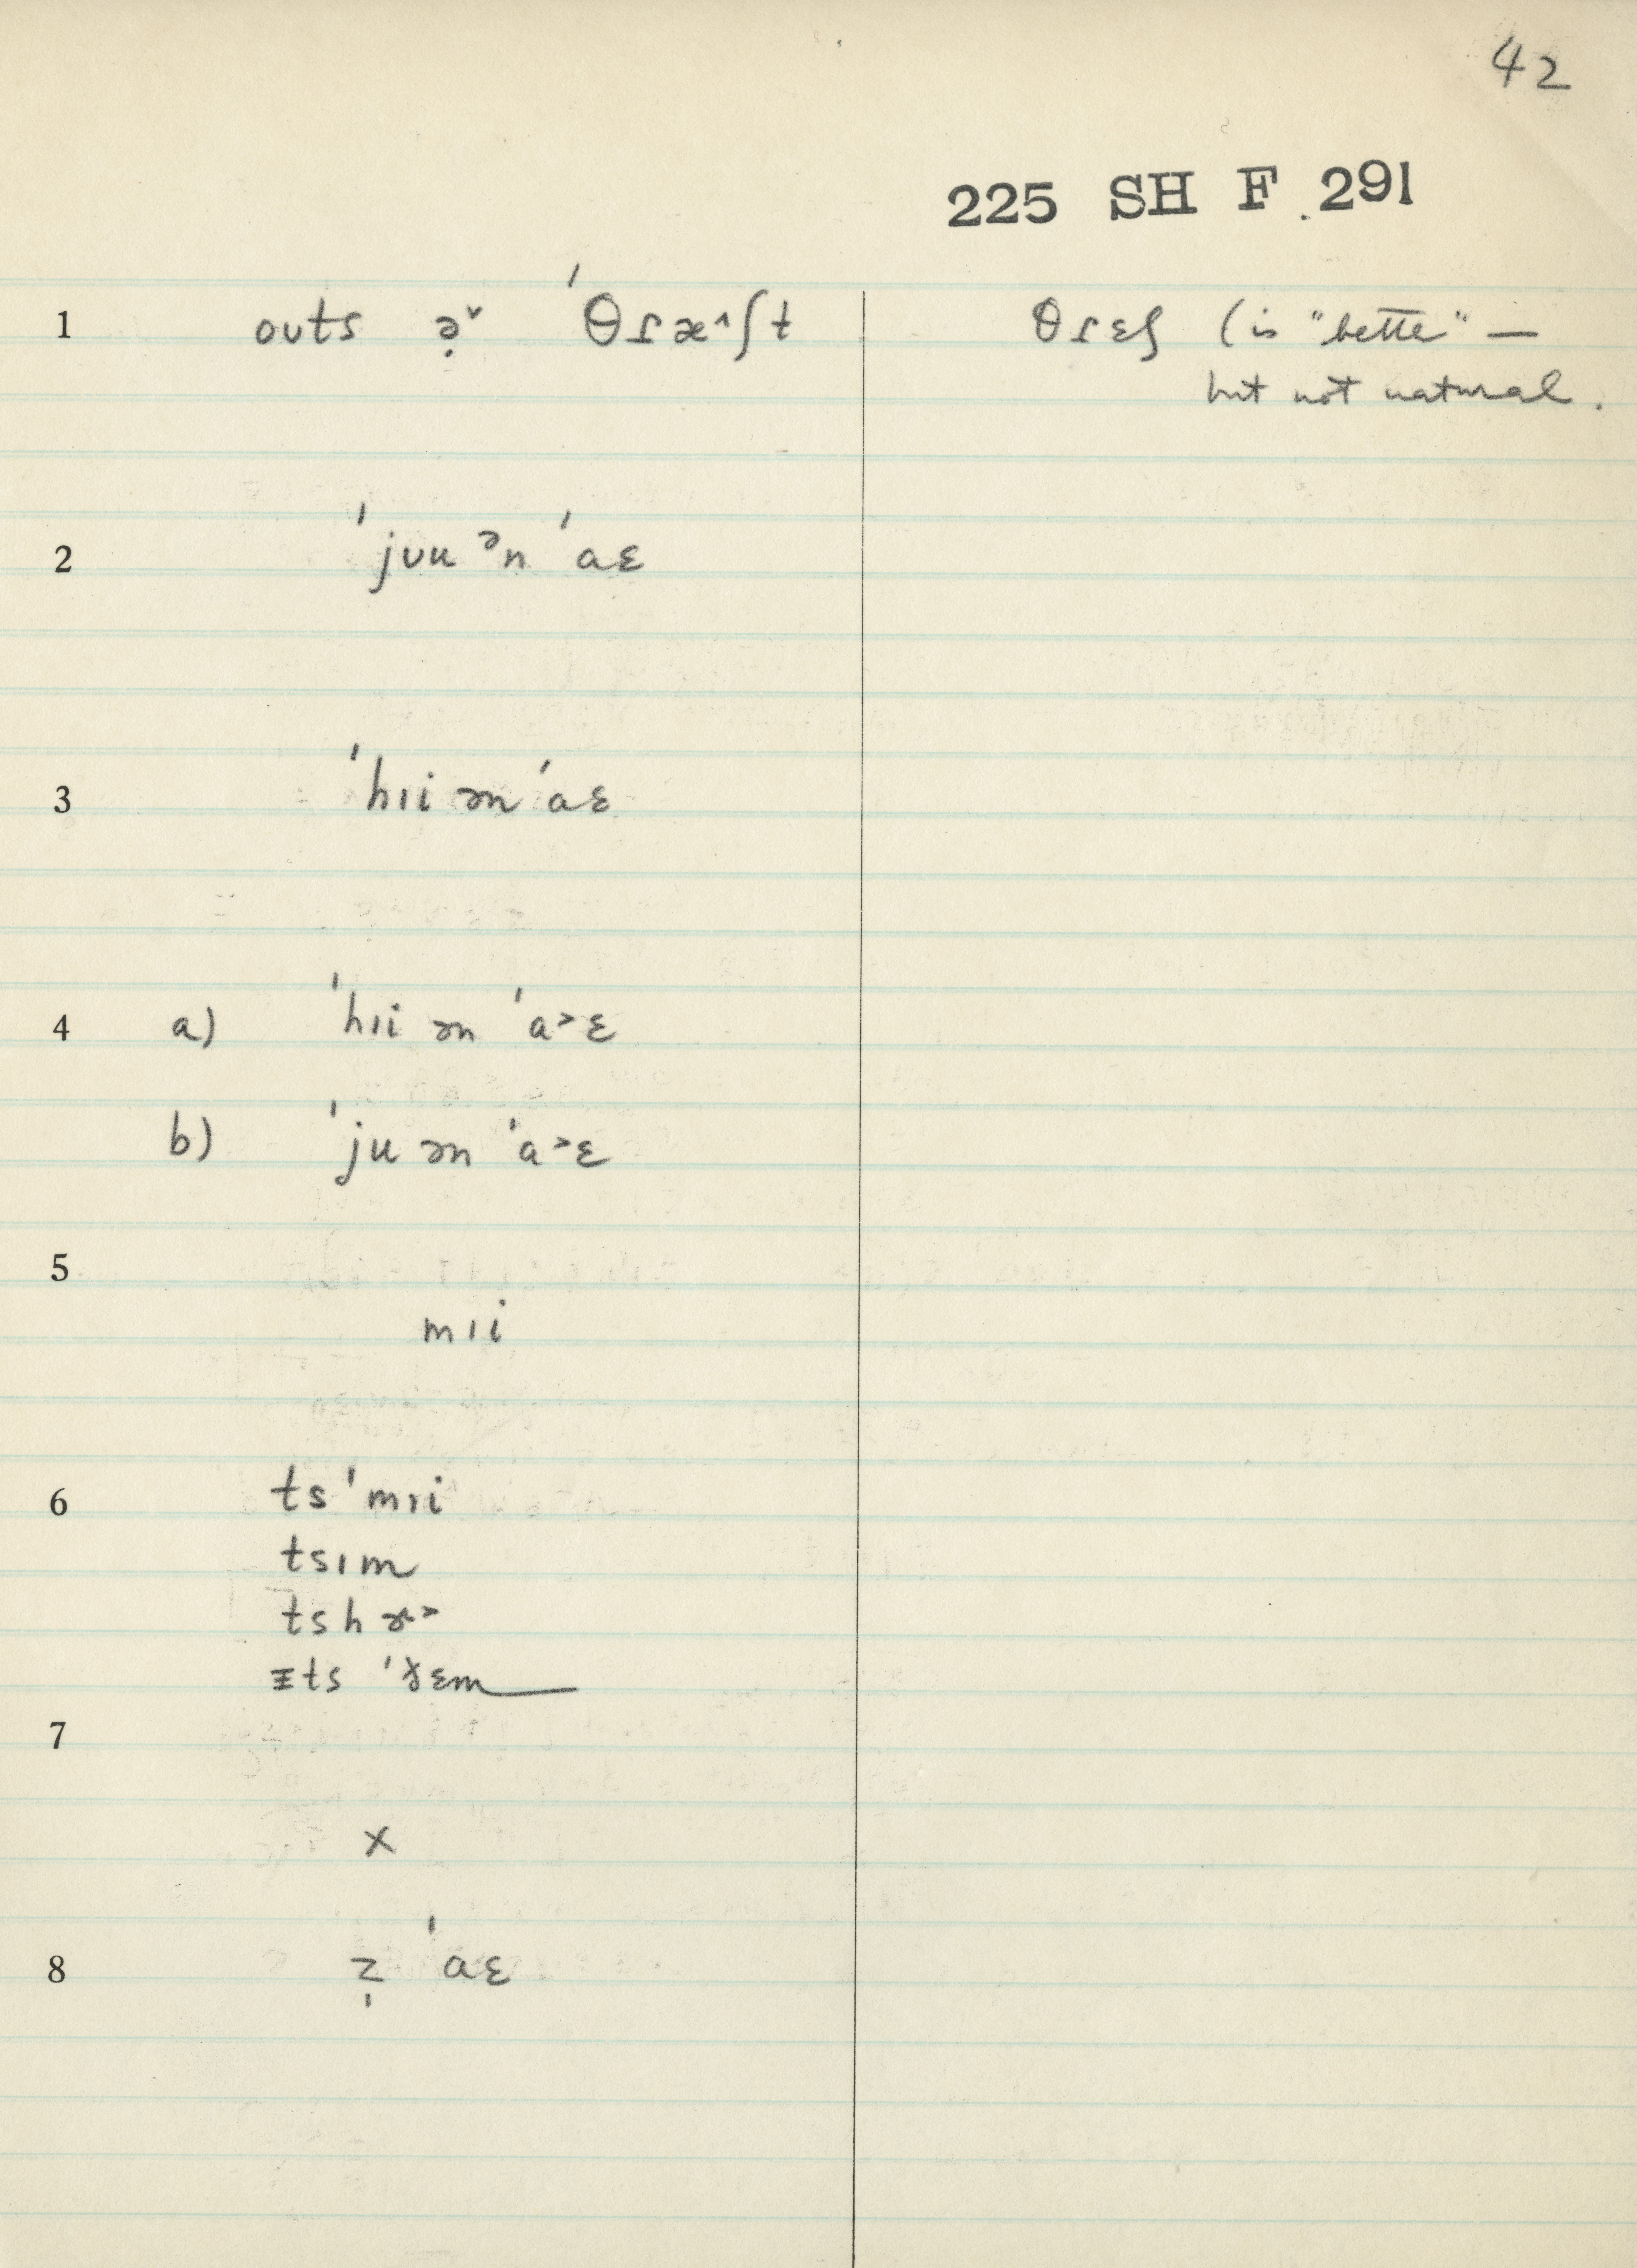 42
225 SH F 291
1 oʊts ə̣˅ ˈθɾæ˄ʃt θɾɛʃ (is "bette" —
but not natural.
2 ˈjʊu ᵊn ˈaɛ
3 ˈhɪi ən ˈaɛ
4 a) ˈhɪi ən ˈa˃ɛ
b) ˈju ən ˈa˃ɛ
5
mɪi
6 ts ˈmɪi
tsɪm
tsh ɚ˃
ɪts ˈðɛm
7
x
8 z̩ ˈaɛ